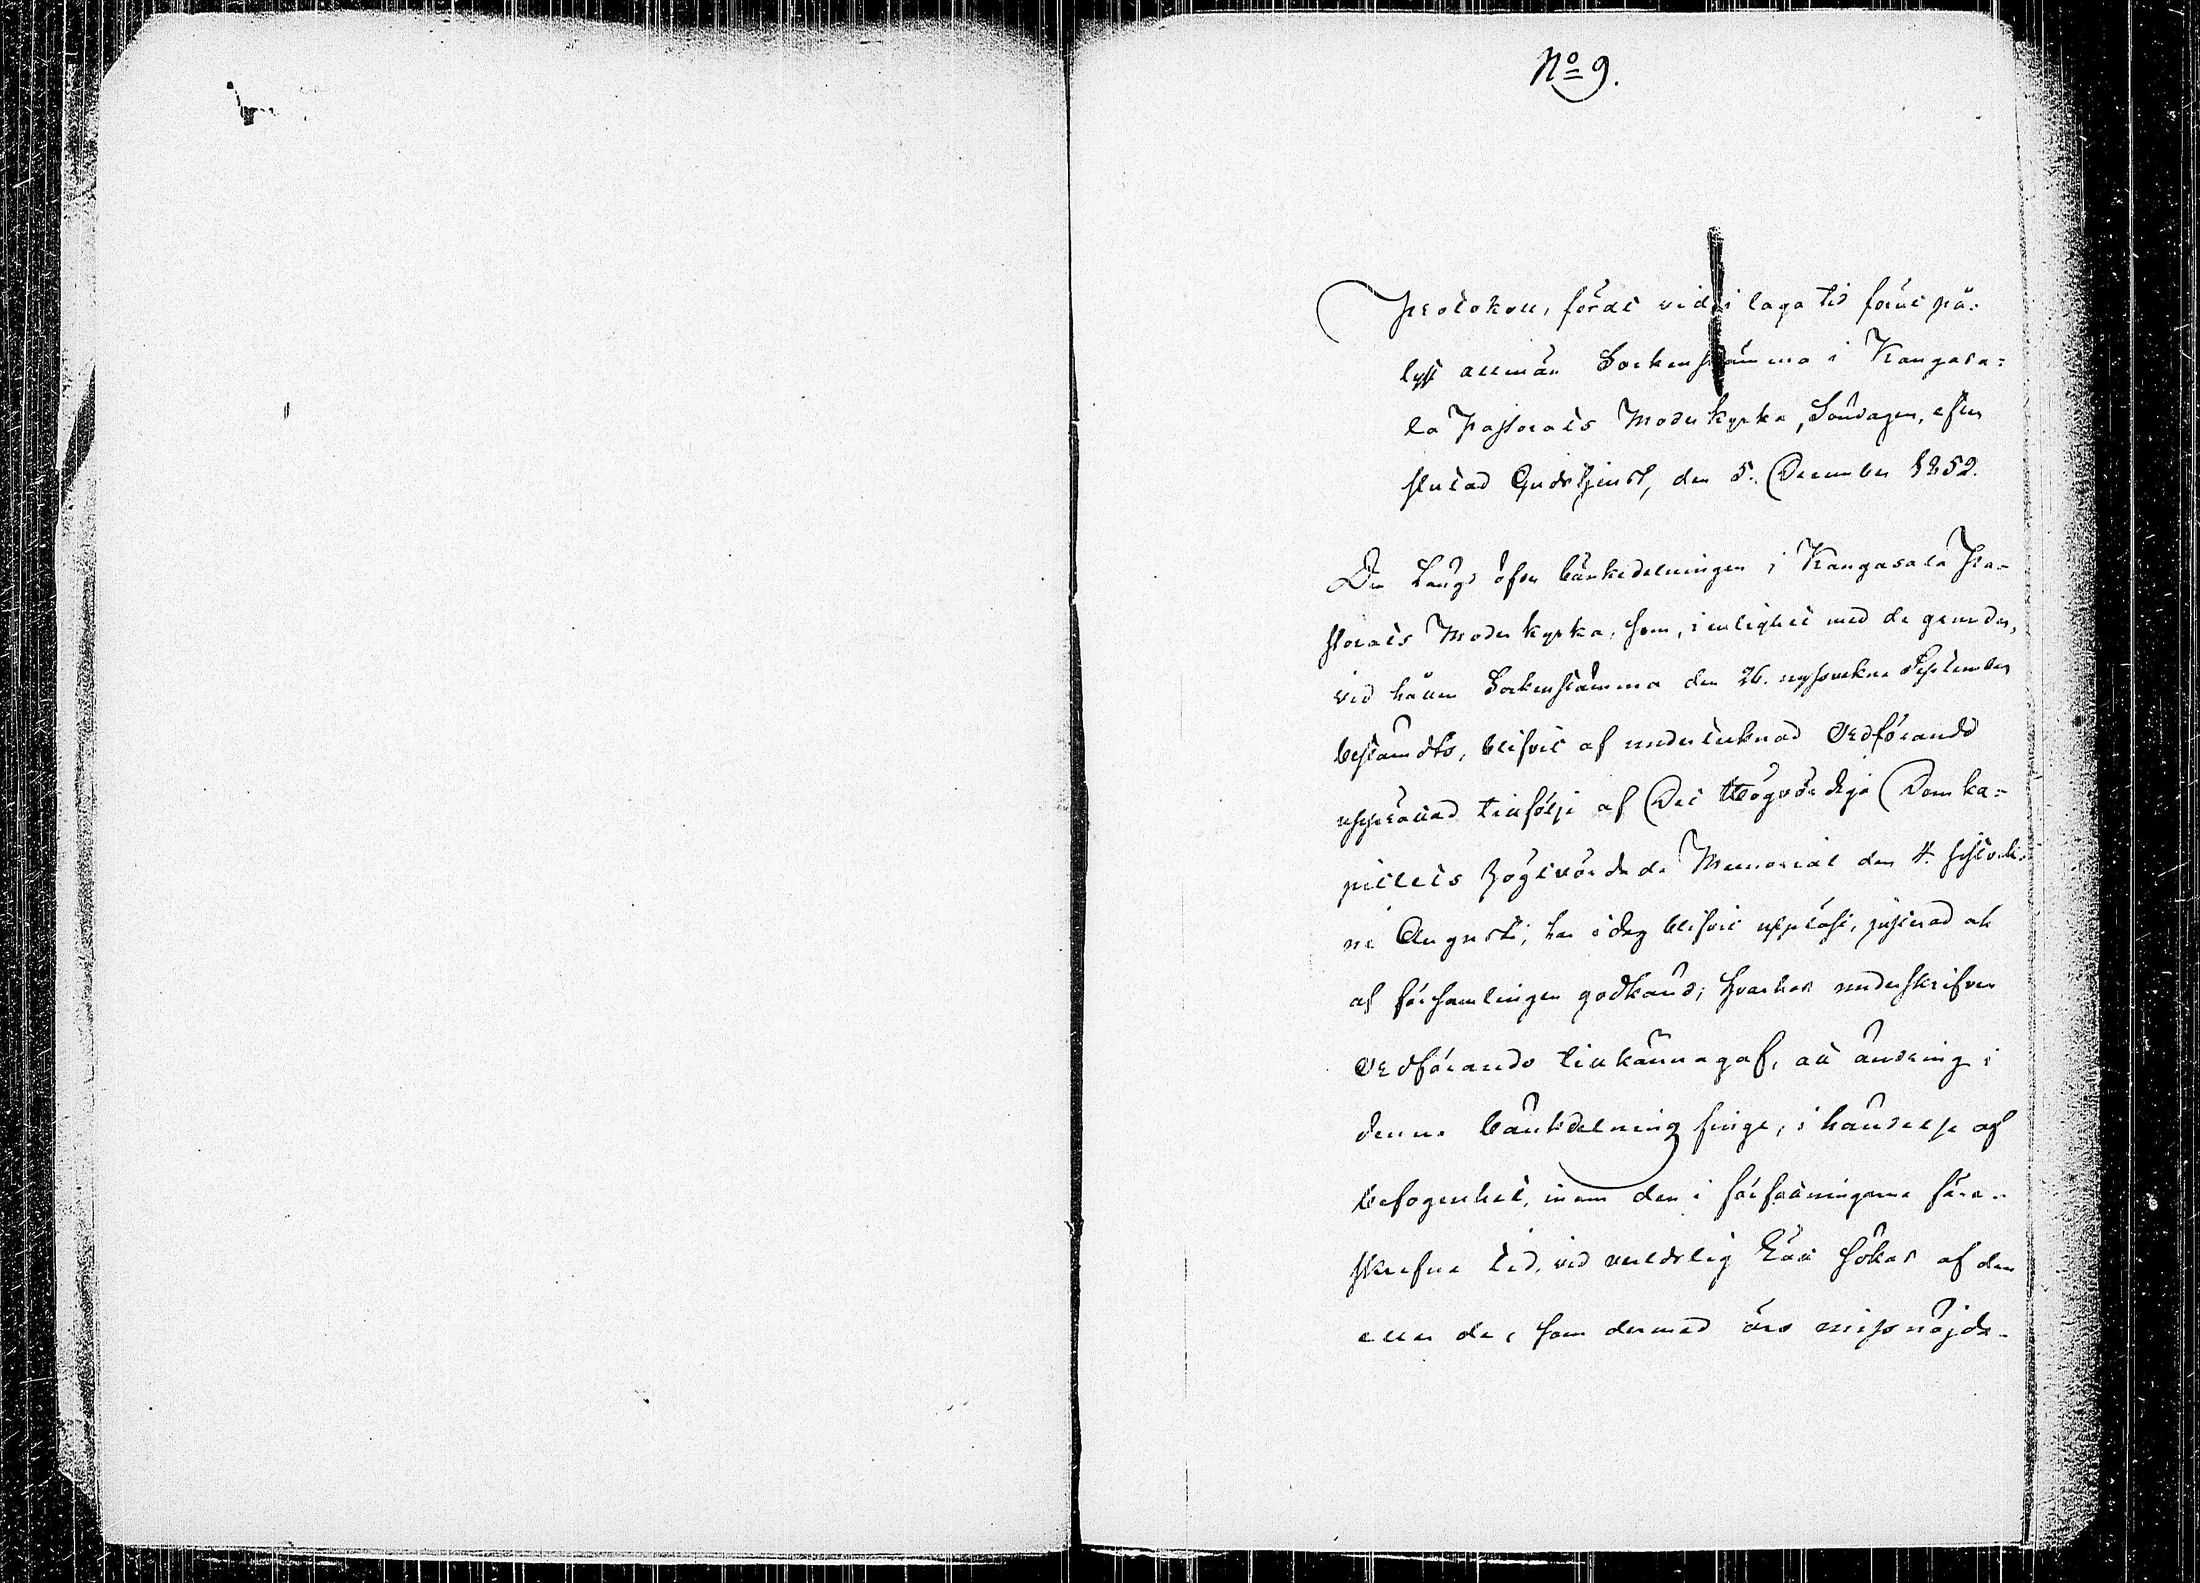 No 9.
Protokoll, fördt vid i laga tid förut på-
lyst allmän Sockenstämma i Kangasa-
la Pastorats Moderkyrka, Söndagen, efter
slutad Gudstjenst, den 5. December 1852.
Den Längd öfver bänkdelningen i Kangasala Pa-
storats Moderkyrka, som, i enlighet med de grunder,
vid hållen Sockenstämma den 26. nystvekne September
bestämdts, blifvit af undertecknad Ordförande
upprättad till följe af Det Högvördiga Domka-
pitlets högtvördade Memorial den 4. sistvek-
ne Augusti, har i dag blifvit uppläst, justerad och
af församlingen godkänd; hvarhos underskrifven
Ordförande tillkännagaf, att ändring i
denna bänkdelning finge, i händelse af
befogenhet, inom den i författningarne före-
skrefne tid, vid verldslig Rätt sökas af den
eller de, som dermed äro missnöjda.